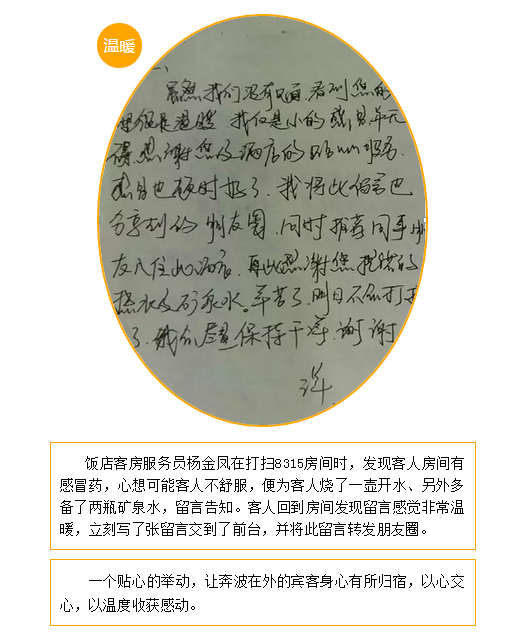 温暖
虽然我们没有见面,看到您的
很是温暖 我们是小的感冒
感谢您及酒店的 服务.
感冒也顿时好了.我将此留言也
分享到的朋友圈.同时推荐同事朋
友入住此酒店.再此感谢您提供的
热水及矿泉水。辛苦了.明日不劳打扫
了.我们尽量保持干净.谢谢
饭店客房服务员杨金凤在打扫8315房间时，发现客人房间有
感冒药，心想可能客人不舒服，便为客人烧了一壶开水、另外多
备了两瓶矿泉水，留言告知。客人回到房间发现留言感觉非常温
暖，立刻写了张留言交到了前台，并将此留言转发朋友圈。
一个贴心的举动，让奔波在外的宾客身心有所归宿，以心交
心，以温度收获感动。